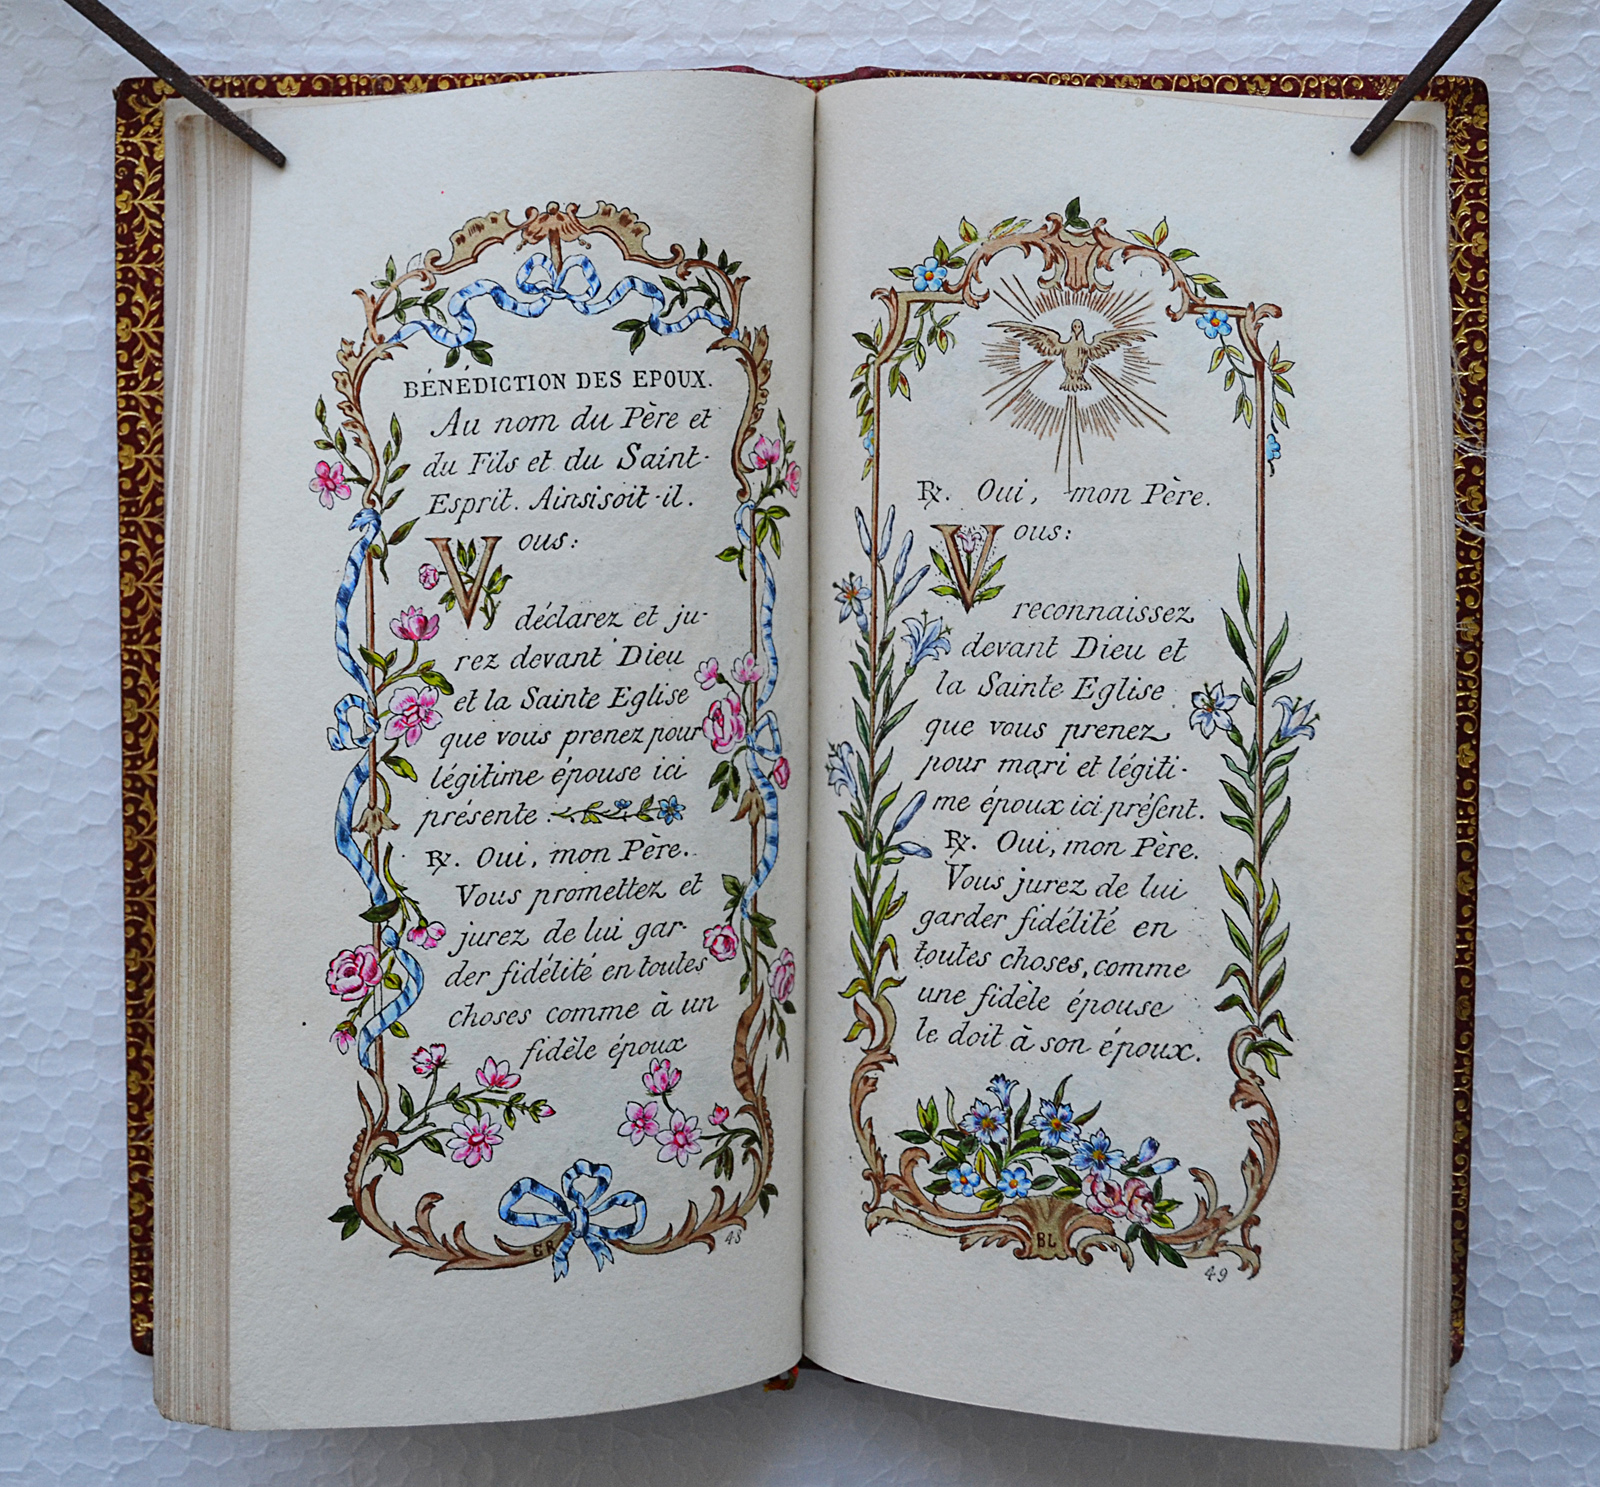 BÉNÉDICTION DES EPOUX.
Au nom du Père et
du Fils et du Saint-
Esprit. Ainsi soit-il.
Vous:
déclarez et ju-
rez devant Dieu
et la Sainte Eglise
que vous prenez pour
légitime épouse ici
présente:
℟. Oui, mon Père.
Vous promettez et
jurez de lui gar-
der fidélité en toutes
choses comme à un
fidèle époux
GR
48
℟. Oui, mon Père.
Vous:
reconnaissez
devant Dieu et
la Sainte Eglise
que vous prenez
pour mari et légiti-
me époux ici préſent.
℟. Oui, mon Père.
Vous jurez de lui
garder fidélité en
toutes choses, comme
une fidèle épouse
le doit à son époux.
BL
49